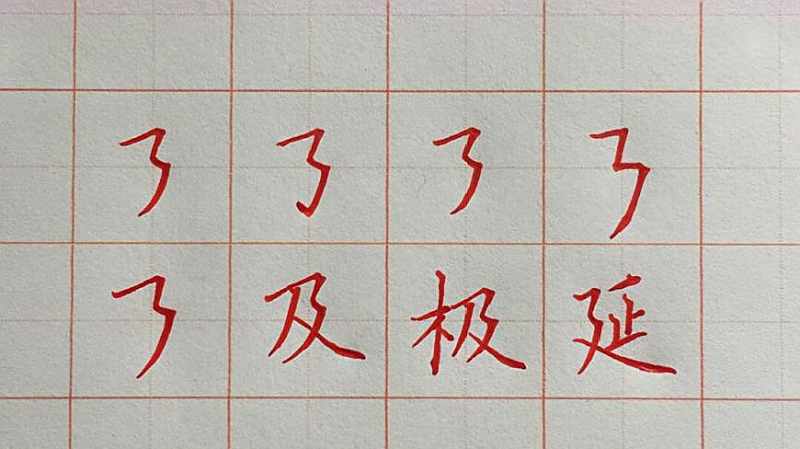 ㇋ ㇋ ㇋ ㇋
㇋ 及 极 延